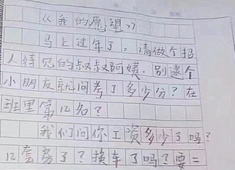 《我的愿望》
马上过年了，请做个招
人待见的叔叔阿姨，别逢个
小朋友就问考了多少分？在
班里第几名？
我们问你工资多少了吗？
几套房了？换车了吗？要二